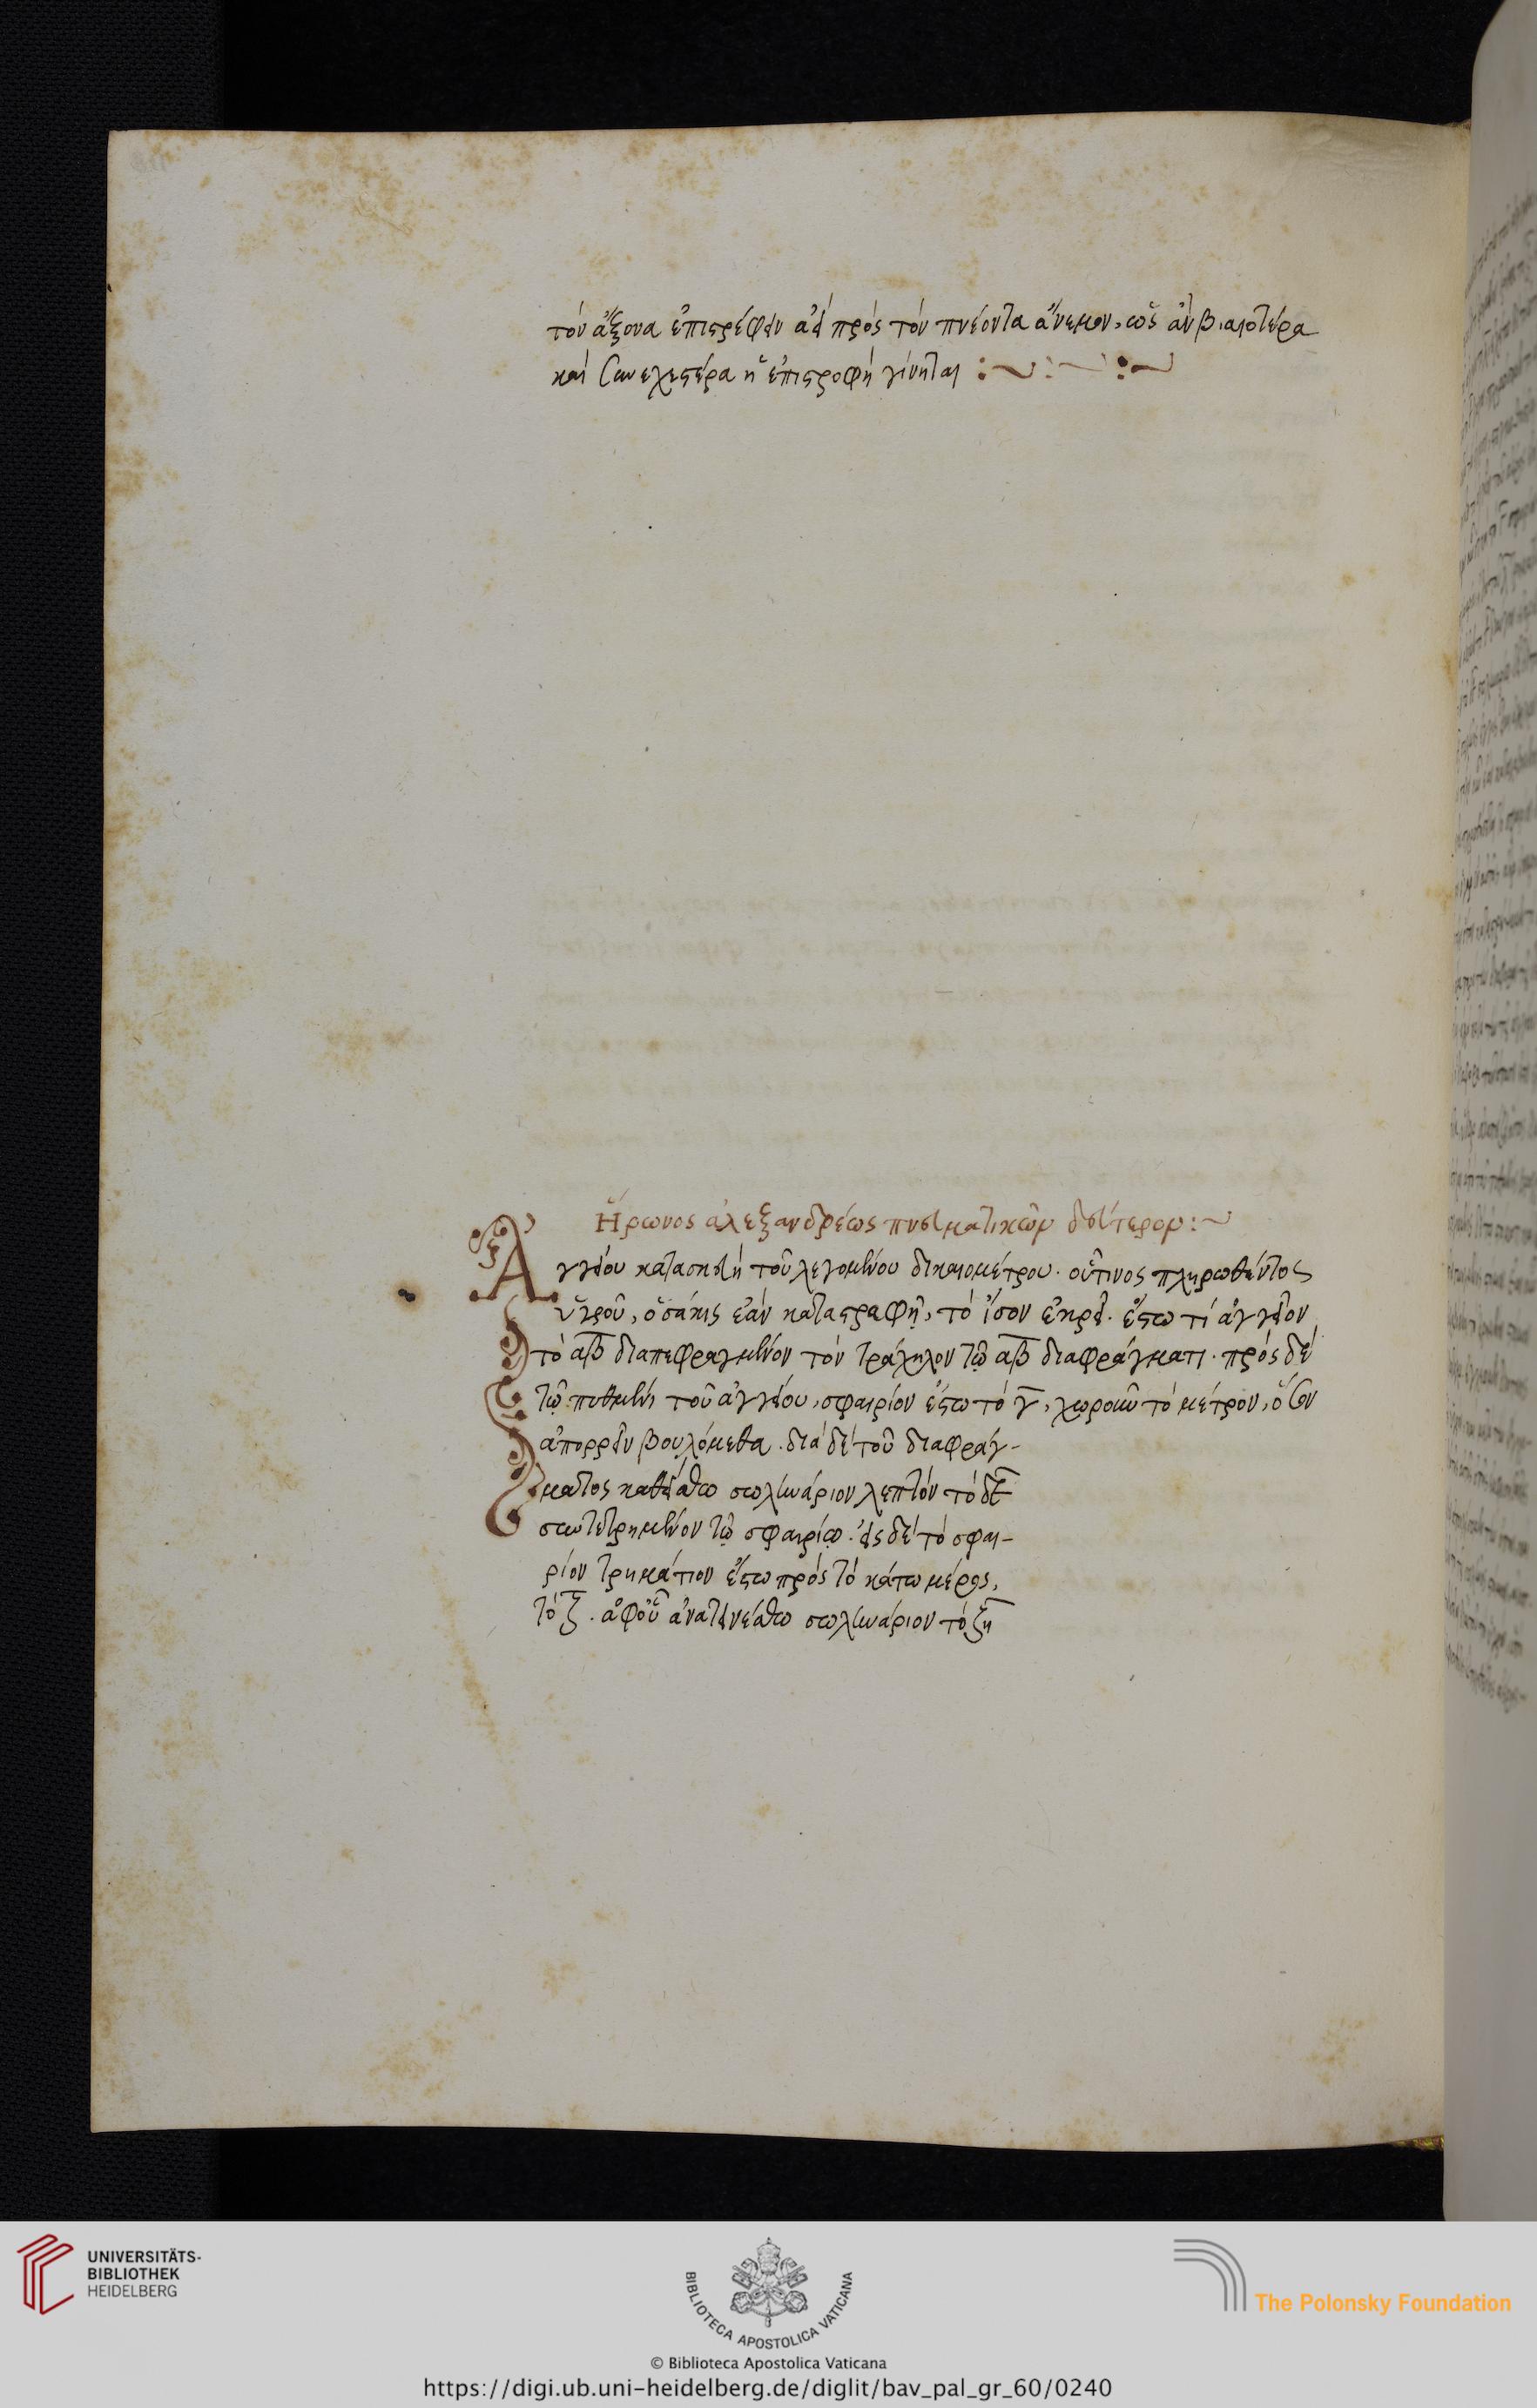 τὸν ἄξονα ἐπιστρέφειν ἀεὶ πρὸς τὸν πνέοντα ἄνεμον, ὡς ἂν βιαιοτέρα
καὶ συνεχεστέρα ἡ ἐπιστροφὴ γίνηται :~ :~ :~
Ἥρωνος ἀλεξανδρέως πνευματικῶν δεύτερον :~
Ἀγγείου κατασκευὴ τοῦ λεγομένου δικαιομέτρου. οὗτινος πληρωθέντος
ὑγροῦ, ὁσάκις ἐὰν καταστραφῇ, τὸ ἴσον ἐκρεῖ. ἔστω τί ἀγγεῖον
τὸ αβ διαπεφραγμένον τὸν τράχηλον τῷ αβ διαφράγματι. πρὸς δὲ
τῷ πυθμένι τοῦ ἀγγείου, σφαιρίον ἔστω τὸ γ, χωροῦν τὸ μέτρον, ὅσον
ἀπορρεῖν βουλόμεθα. διὰ δὲ τοῦ διαφράγ-
ματος καθείσθω σωληνάριον λεπτὸν τὸ δε
συντετρημένον τῷ σφαιρίῳ. εἰς δὲ τὸ σφαι-
ρίον τρημάτιον ἔστω πρὸς τὸ κάτω μέρος,
τὸ ζ. ἀφοῦ ἀνατεινέσθω σωληνάριον τὸ ζη
UNIVERSITÄTS-
BIBLIOTHEK
HEIDELBERG
BIBLIOTECA APOSTOLICA VATICANA
The Polonsky Foundation
© Biblioteca Apostolica Vaticana
https://digi.ub.uni-heidelberg.de/diglit/bav_pal_gr_60/0240